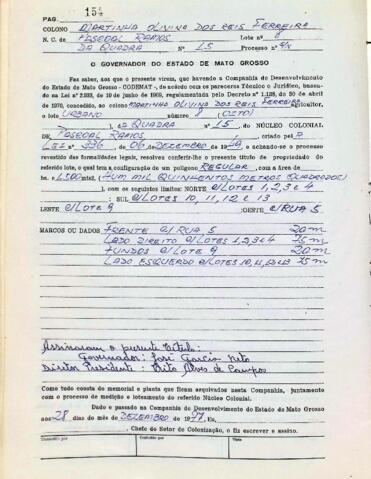 PAG. 154
COLONO MARTINHA OLIVINA DOS REIS FERREIRA
N. C. de PASCOAL RAMOS Lote n.º 8
DA QUADRA N.º 15 Processo n.º
O GOVERNADOR DO ESTADO DE MATO GROSSO
Faz saber, aos que o presente virem, que havendo a Companhia de Desenvolvimento
do Estado de Mato Grosso - CODEMAT-, de acordo com os pareceres Técnico e Jurídico, basea-
do na Lei nº 2.933, de 10 de junho de 1969, regulamentada pelo Decreto nº 1.138, de 30 de abril
de 1970, concedido, ao colono MARTINHA OLIVINA DOS REIS FERREIRA agricultor,
o lote URBANO n.º 8 (OITO)
DA QUADRA n.º 15, DO NÚCLEO COLONIAL
DE PASCOAL RAMOS, criado pela
LEI nº 336, de 06, DEZEMBRO de 1949, e achando-se o processo
revestido das formalidades legais, resolveu conferir-lhe o presente título de propriedade
do referido lote, o qual tem a configuração de um polígono REGULAR, com a área de
ha. e 1.500 mts2, (HUM MIL QUINHENTOS METROS QUADRADOS)
), com os seguintes limites: NORTE c/LOTES 1, 2, 3 e 4
: SUL c/LOTES 10, 11, 12 e 13
LESTE c/LOTE 9 :OESTE c/RUA 5
MARCOS OU DADOS FRENTE c/ RUA 5 20 m
LADO DIREITO c/LOTES 1, 2, 3 e 4 75 m
FUNDOS c/LOTE 9 20 m
LADO ESQUERDO c/LOTES 10, 11, 12 e 13 75 m
Assinaram o presente título:
Governador: José Garcia Neto
Diretor Presidente: Bito Alves de Campos
Como tudo consta do memorial e planta que ficam arquivados nesta Companhia, juntamente
com o processo de medição e loteamento do referido Núcleo Colonial.
Dado e passado na Companhia de Desenvolvimento do Estado de Mato Grosso
aos 28 dias do mês DEZEMBRO de 1977, Eu,
, Chefe do Setor de Colonização, o fiz escrever e assino.